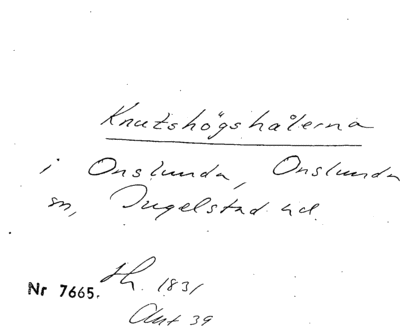 Knutshögshålorna
i Onslunda, Onslunda
sn, Ingelstad hd.
Sh. 1831
Nr 7665.
Akt 39